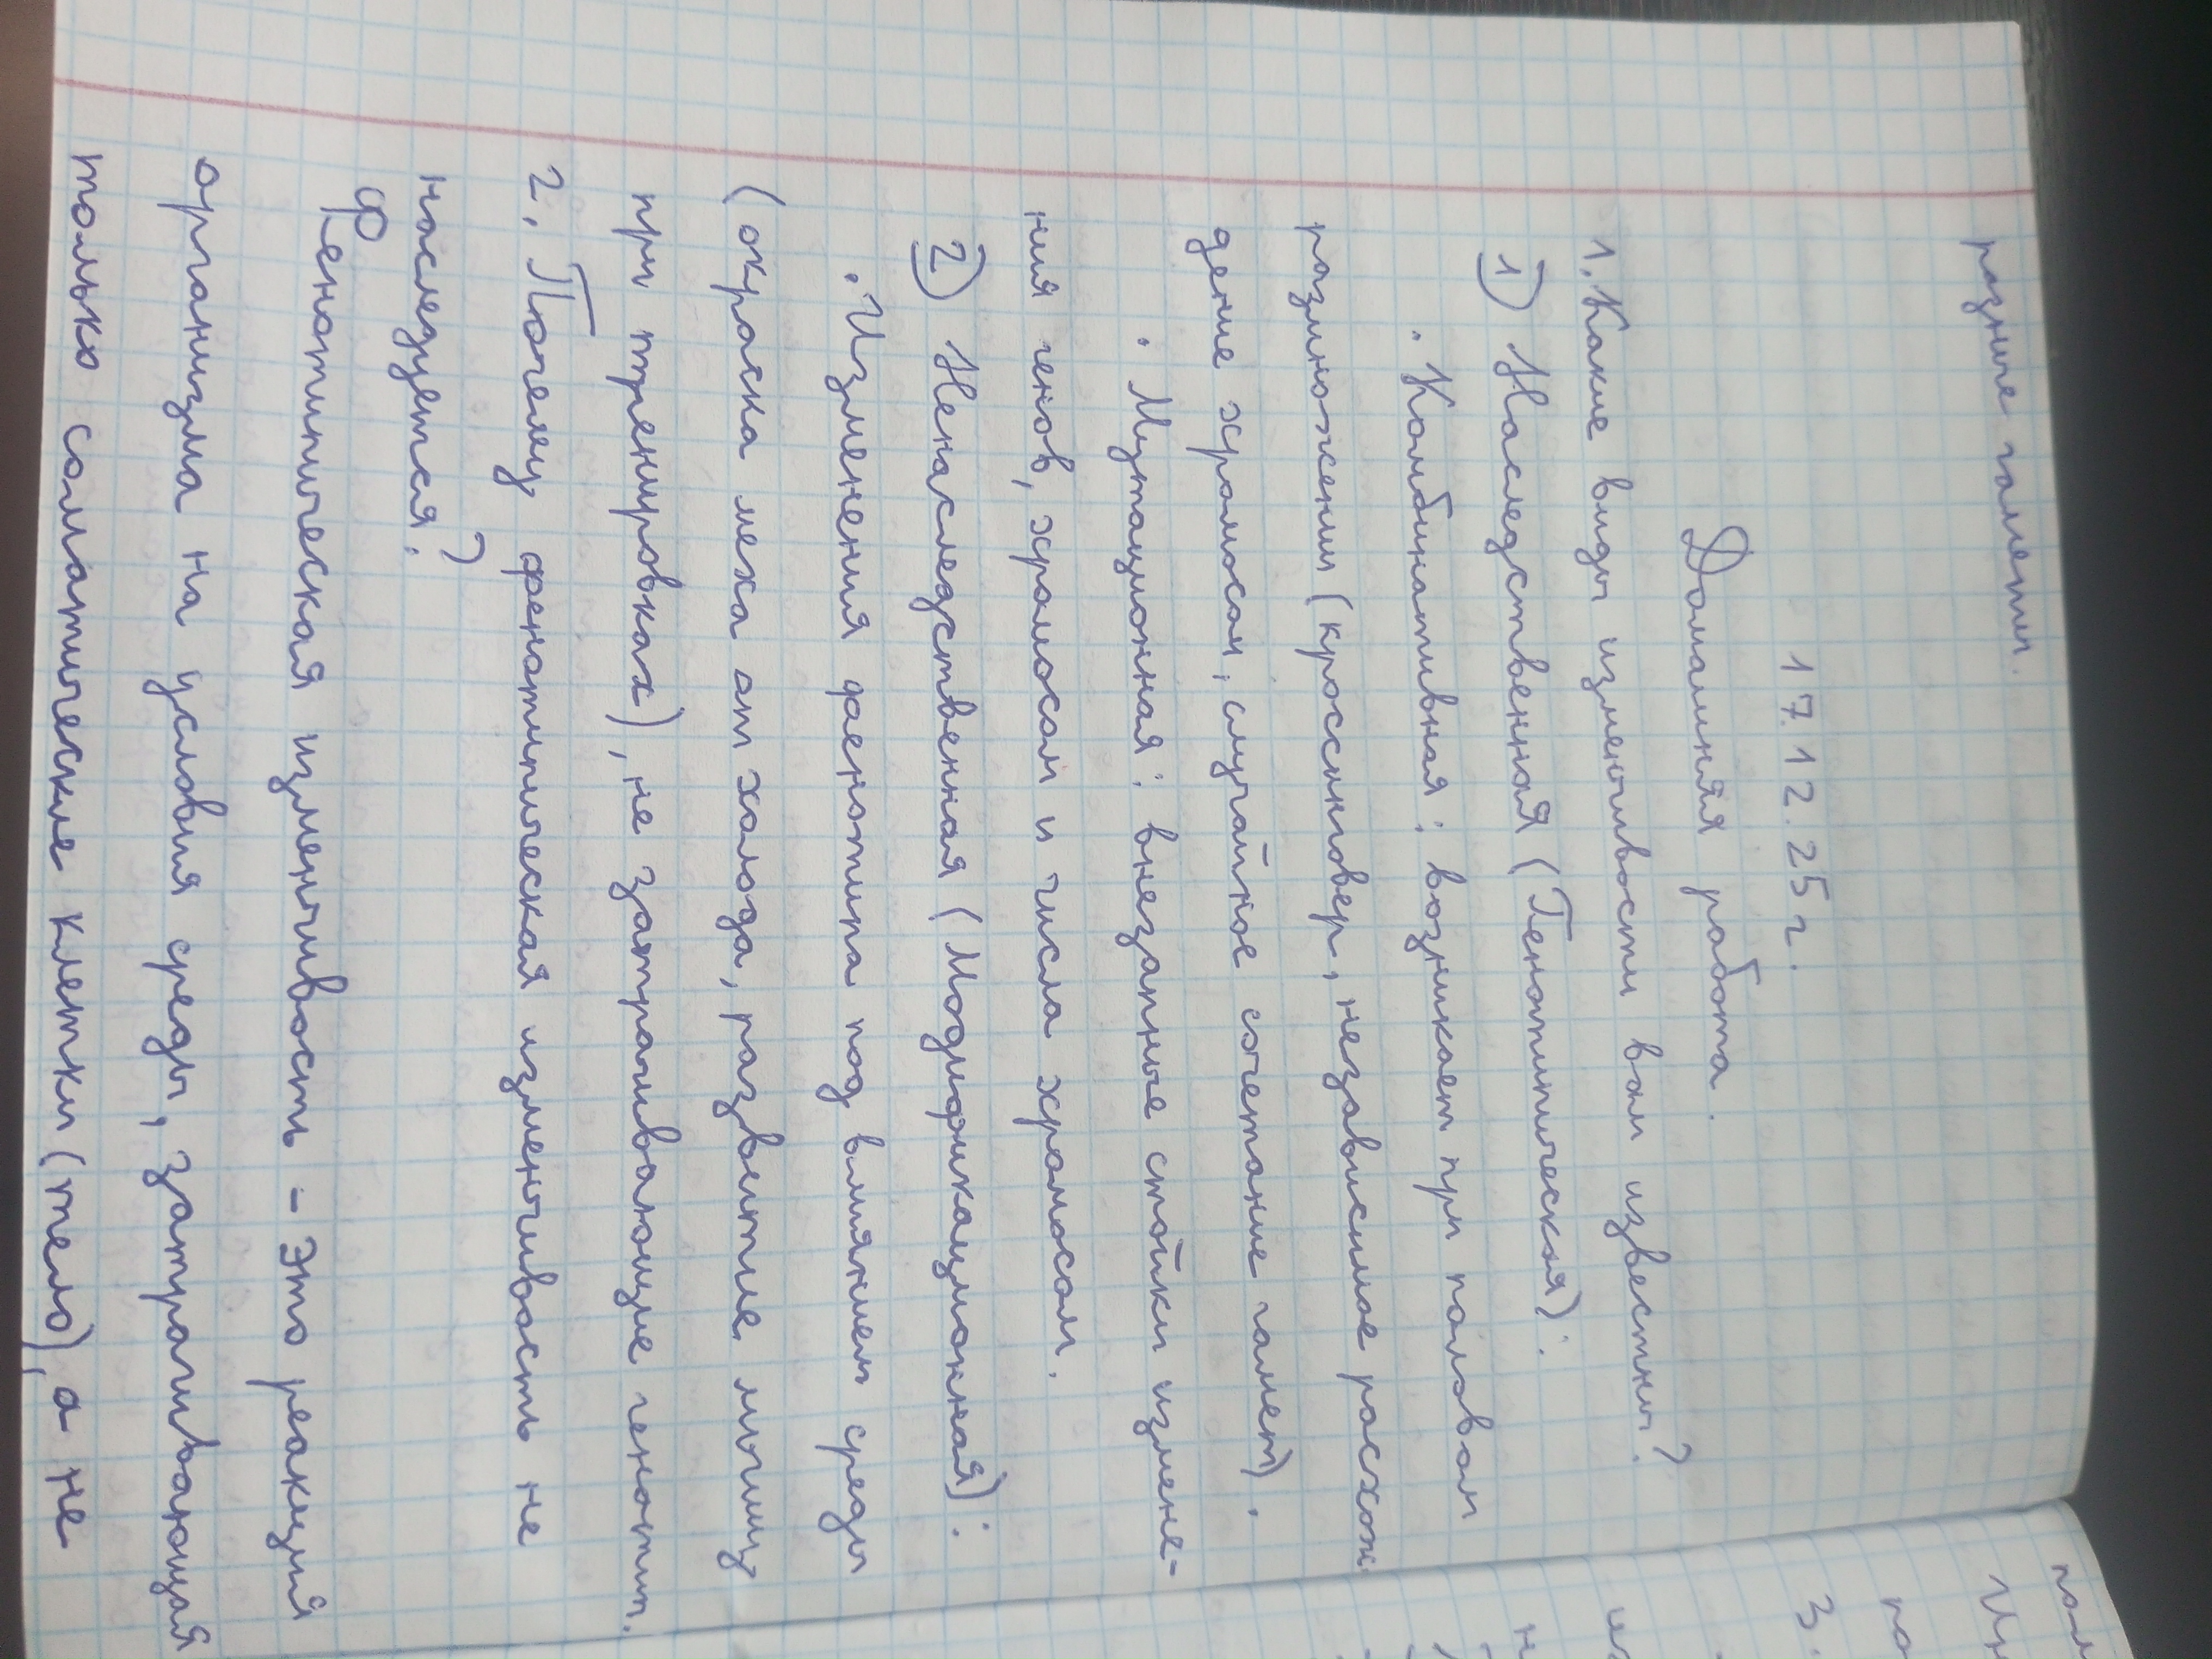 разные гаметы.
17.12.25 г.
Домашняя работа.
1. Какие виды изменчивости вам известны?
1) Наследственная (Генотипическая):
• Комбинативная: возникает при половом
размножении (кроссинговер, независимое расхож
дение хромосом, случайное сочетание гамет).
• Мутационная: внезапные стойки измене-
ния генов, хромосом и числа хромосом.
2) Ненаследственная (Модификационная):
• Изменения фенотипа под влиянием среды
(окраска меха от холода, развитие мышц
при тренировках), не затрагивающие генотип.
2. Почему фенотипическая изменчивость не
наследуется?
Фенотипическая изменчивость - это реакция
организма на условия среды, затрагивающая
только соматические клетки (тело), а не
3.